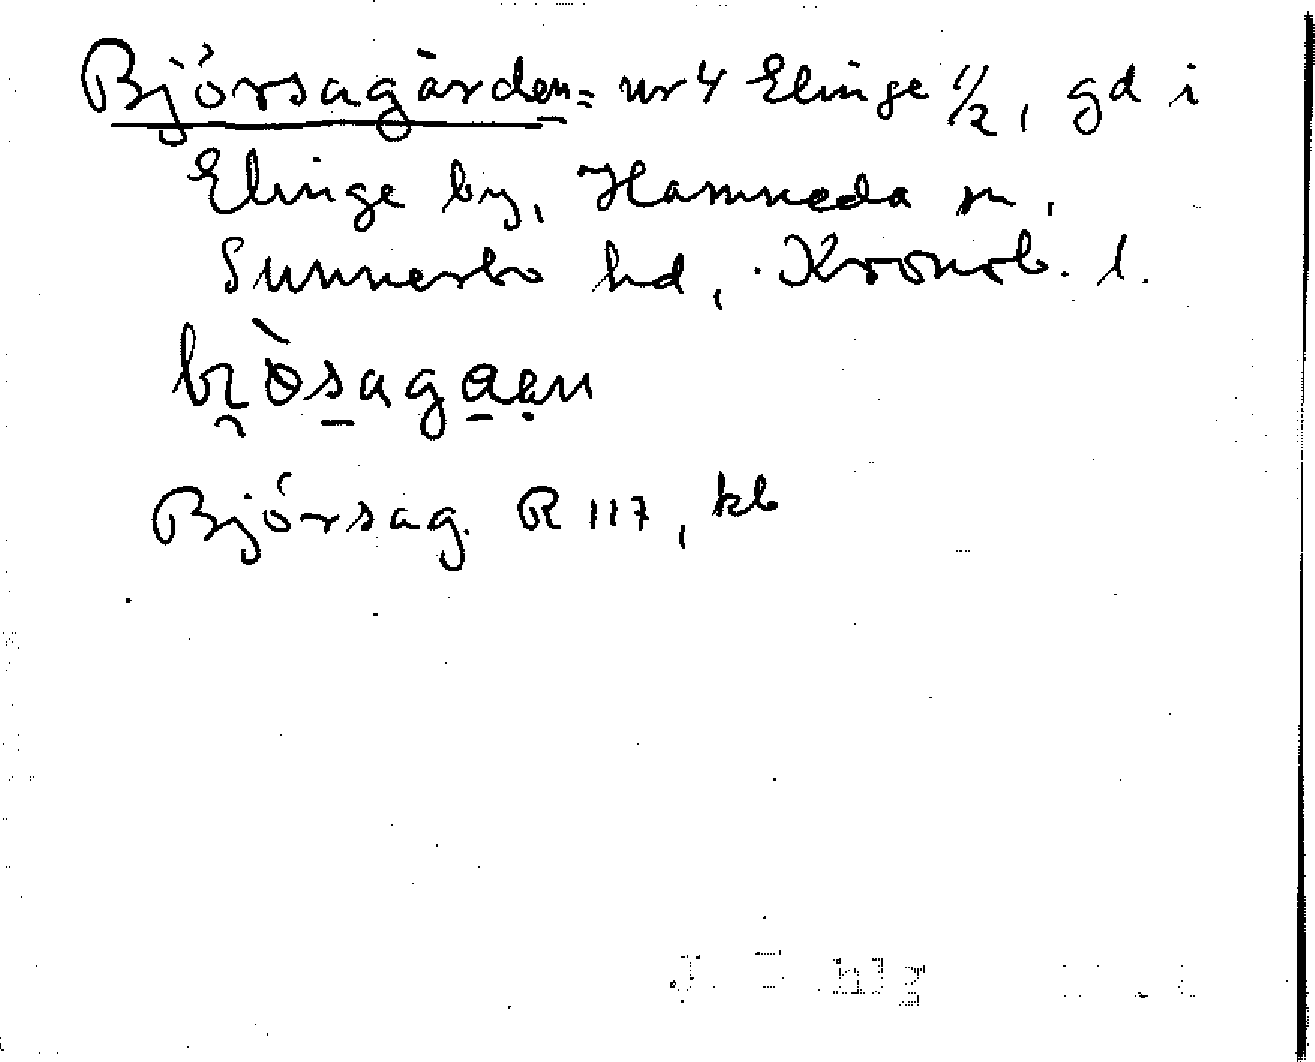 Björsagården = nr 4 Elinge 1/2, gd i
Elinge by, Hamneda sn,
Sunnerbo hd, Kronob. l.
bjòsagaən
Björsag. R 117, kb